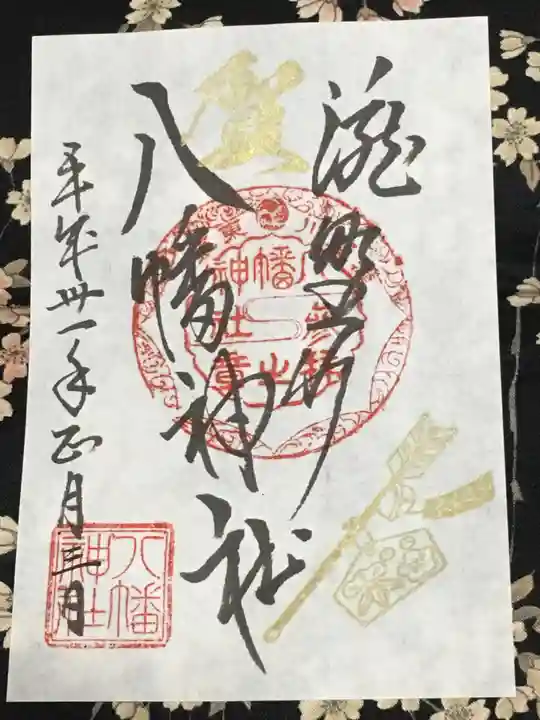 賀
瀧野川
八幡神社
平成卅一年正月三日
八幡神社